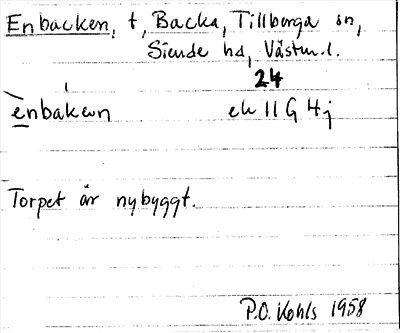 Enbacken, t, Backa, Tillberga sn,
Siende hd, Västm.l.
24
ènbákən ek 11 G 4j
Torpet är nybyggt.
P.O. Kohls 1958